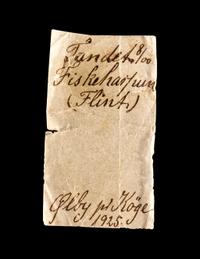 Tandet 8/00
Fiskeharpun
(Flint)
Ølby pr Køge
1925.